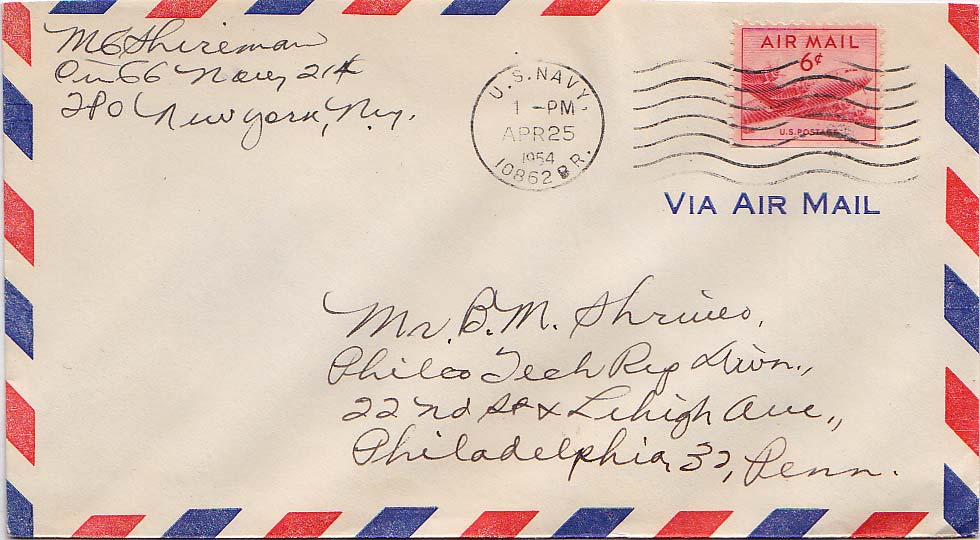 M C Shireman
Om 66 Navy 214
280 New York, N.y.
U.S. NAVY.
1 -PM
APR 25
1954
10862 BR.
AIR MAIL
6¢
U.S. POSTAGE
VIA AIR MAIL
Mr. B. M. Shrives,
Philco Tech Rep Divn.,
22nd St & Lehigh Ave.,
Philadelphia, 32, Penn.